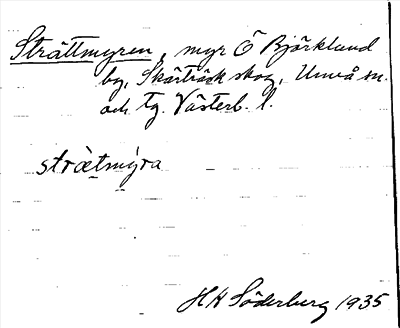 Strättmyren, myr Ö Björklund
by, Skärträsk skog, Umeå sn.
och tg. Västerb. l.
strætmýra
H H Söderberg 1935